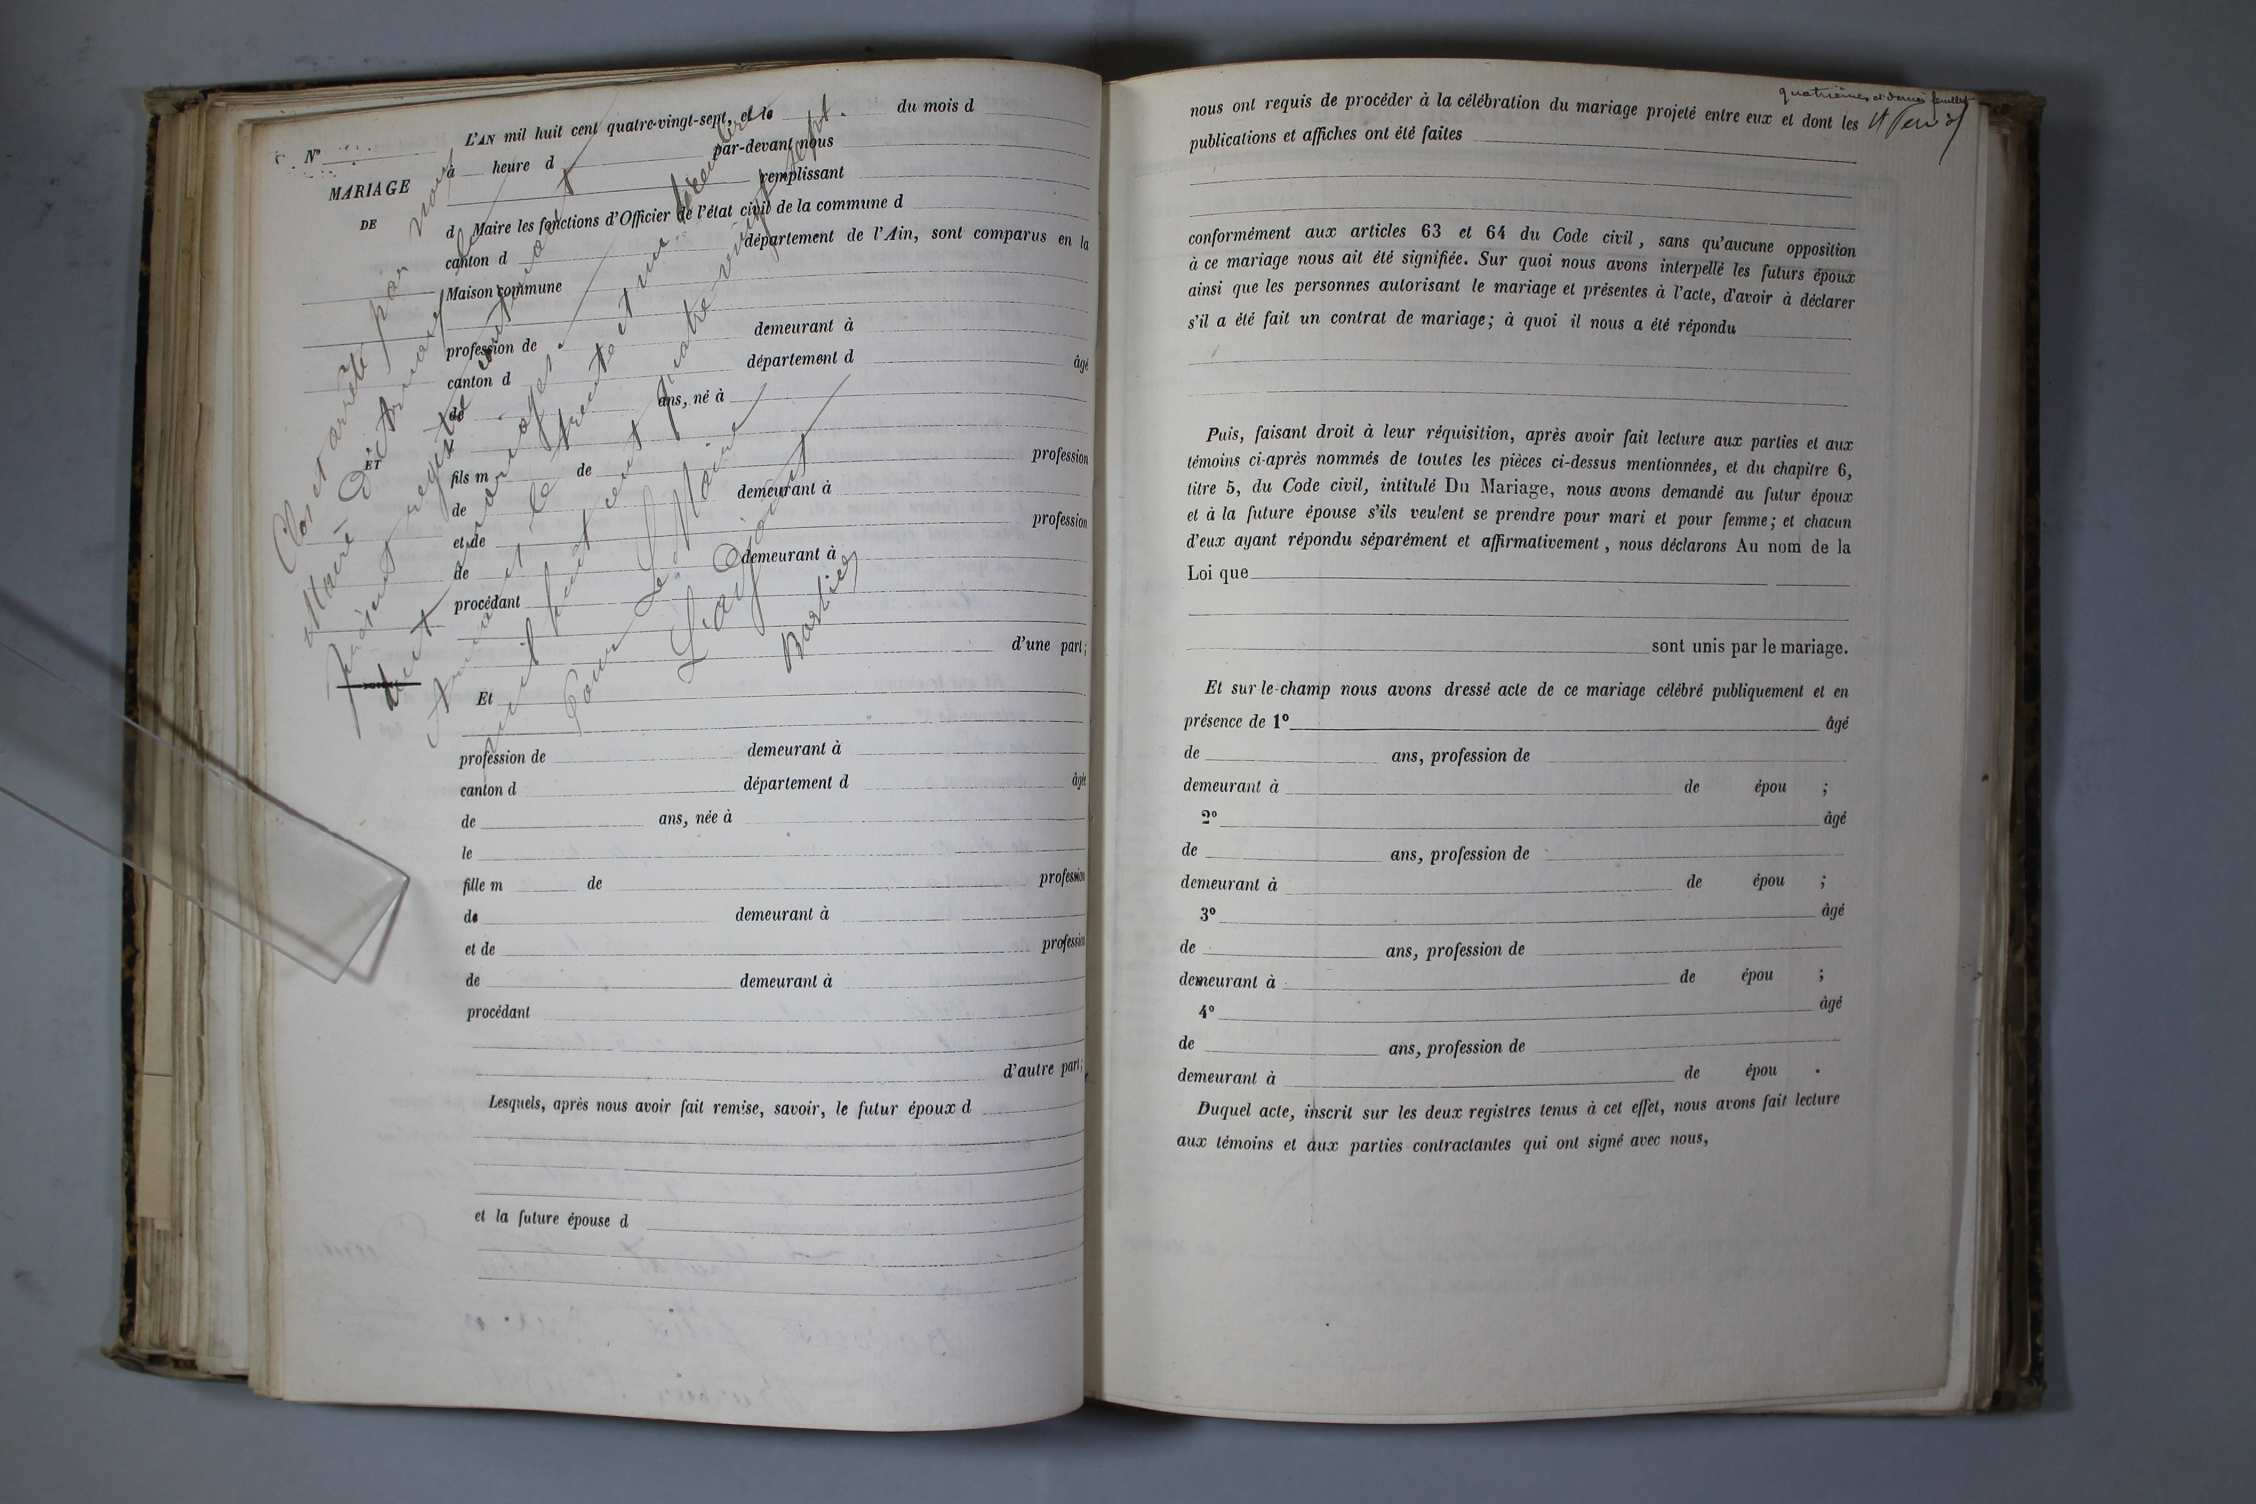 N°
MARIAGE
DE
ET
L'AN mil huit cent quatre-vingt-sept, et le du mois d
à heure d par-devant nous
remplissant
d Maire les fonctions d'Officier de l'état civil de la commune d
canton d département de l'Ain, sont comparus en la
Maison commune
profession de demeurant à
canton d département d âgé
de ans, né à
fils m de profession
de demeurant à
et de profession
de demeurant à
procédant
d'une part;
Et
profession de demeurant à
canton d département d âgée
de ans, née à
le
fille m de profession
de demeurant à
et de profession
de demeurant à
procédant
d'autre part;
Lesquels, après nous avoir fait remise, savoir, le futur époux d
et la future épouse d
Clos et arrêté par nous
Maire
présent registre
huit
et le trente et un décembre
mil huit cent quatre vingt sept.
Pour Le Maire
L'adjoint
Barbier
quatrième et dernier feuillet
nous ont requis de procéder à la célébration du mariage projeté entre eux et dont les
publications et affiches ont été faites
conformément aux articles 63 et 64 du Code civil, sans qu'aucune opposition
à ce mariage nous ait été signifiée. Sur quoi nous avons interpellé les futurs époux
ainsi que les personnes autorisant le mariage et présentes à l'acte, d'avoir à déclarer
s'il a été fait un contrat de mariage; à quoi il nous a été répondu
Puis, faisant droit à leur réquisition, après avoir fait lecture aux parties et aux
témoins ci-après nommés de toutes les pièces ci-dessus mentionnées, et du chapitre 6,
titre 5, du Code civil, intitulé Du Mariage, nous avons demandé au futur époux
et à la future épouse s'ils veulent se prendre pour mari et pour femme; et chacun
d'eux ayant répondu séparément et affirmativement, nous déclarons Au nom de la
Loi que
sont unis par le mariage.
Et sur-le-champ nous avons dressé acte de ce mariage célébré publiquement et en
présence de 1° âgé
de ans, profession de
demeurant à de épou ;
2° âgé
de ans, profession de
demeurant à de épou ;
3° âgé
de ans, profession de
demeurant à de épou ;
4° âgé
de ans, profession de
demeurant à de épou .
Duquel acte, inscrit sur les deux registres tenus à cet effet, nous avons fait lecture
aux témoins et aux parties contractantes qui ont signé avec nous,